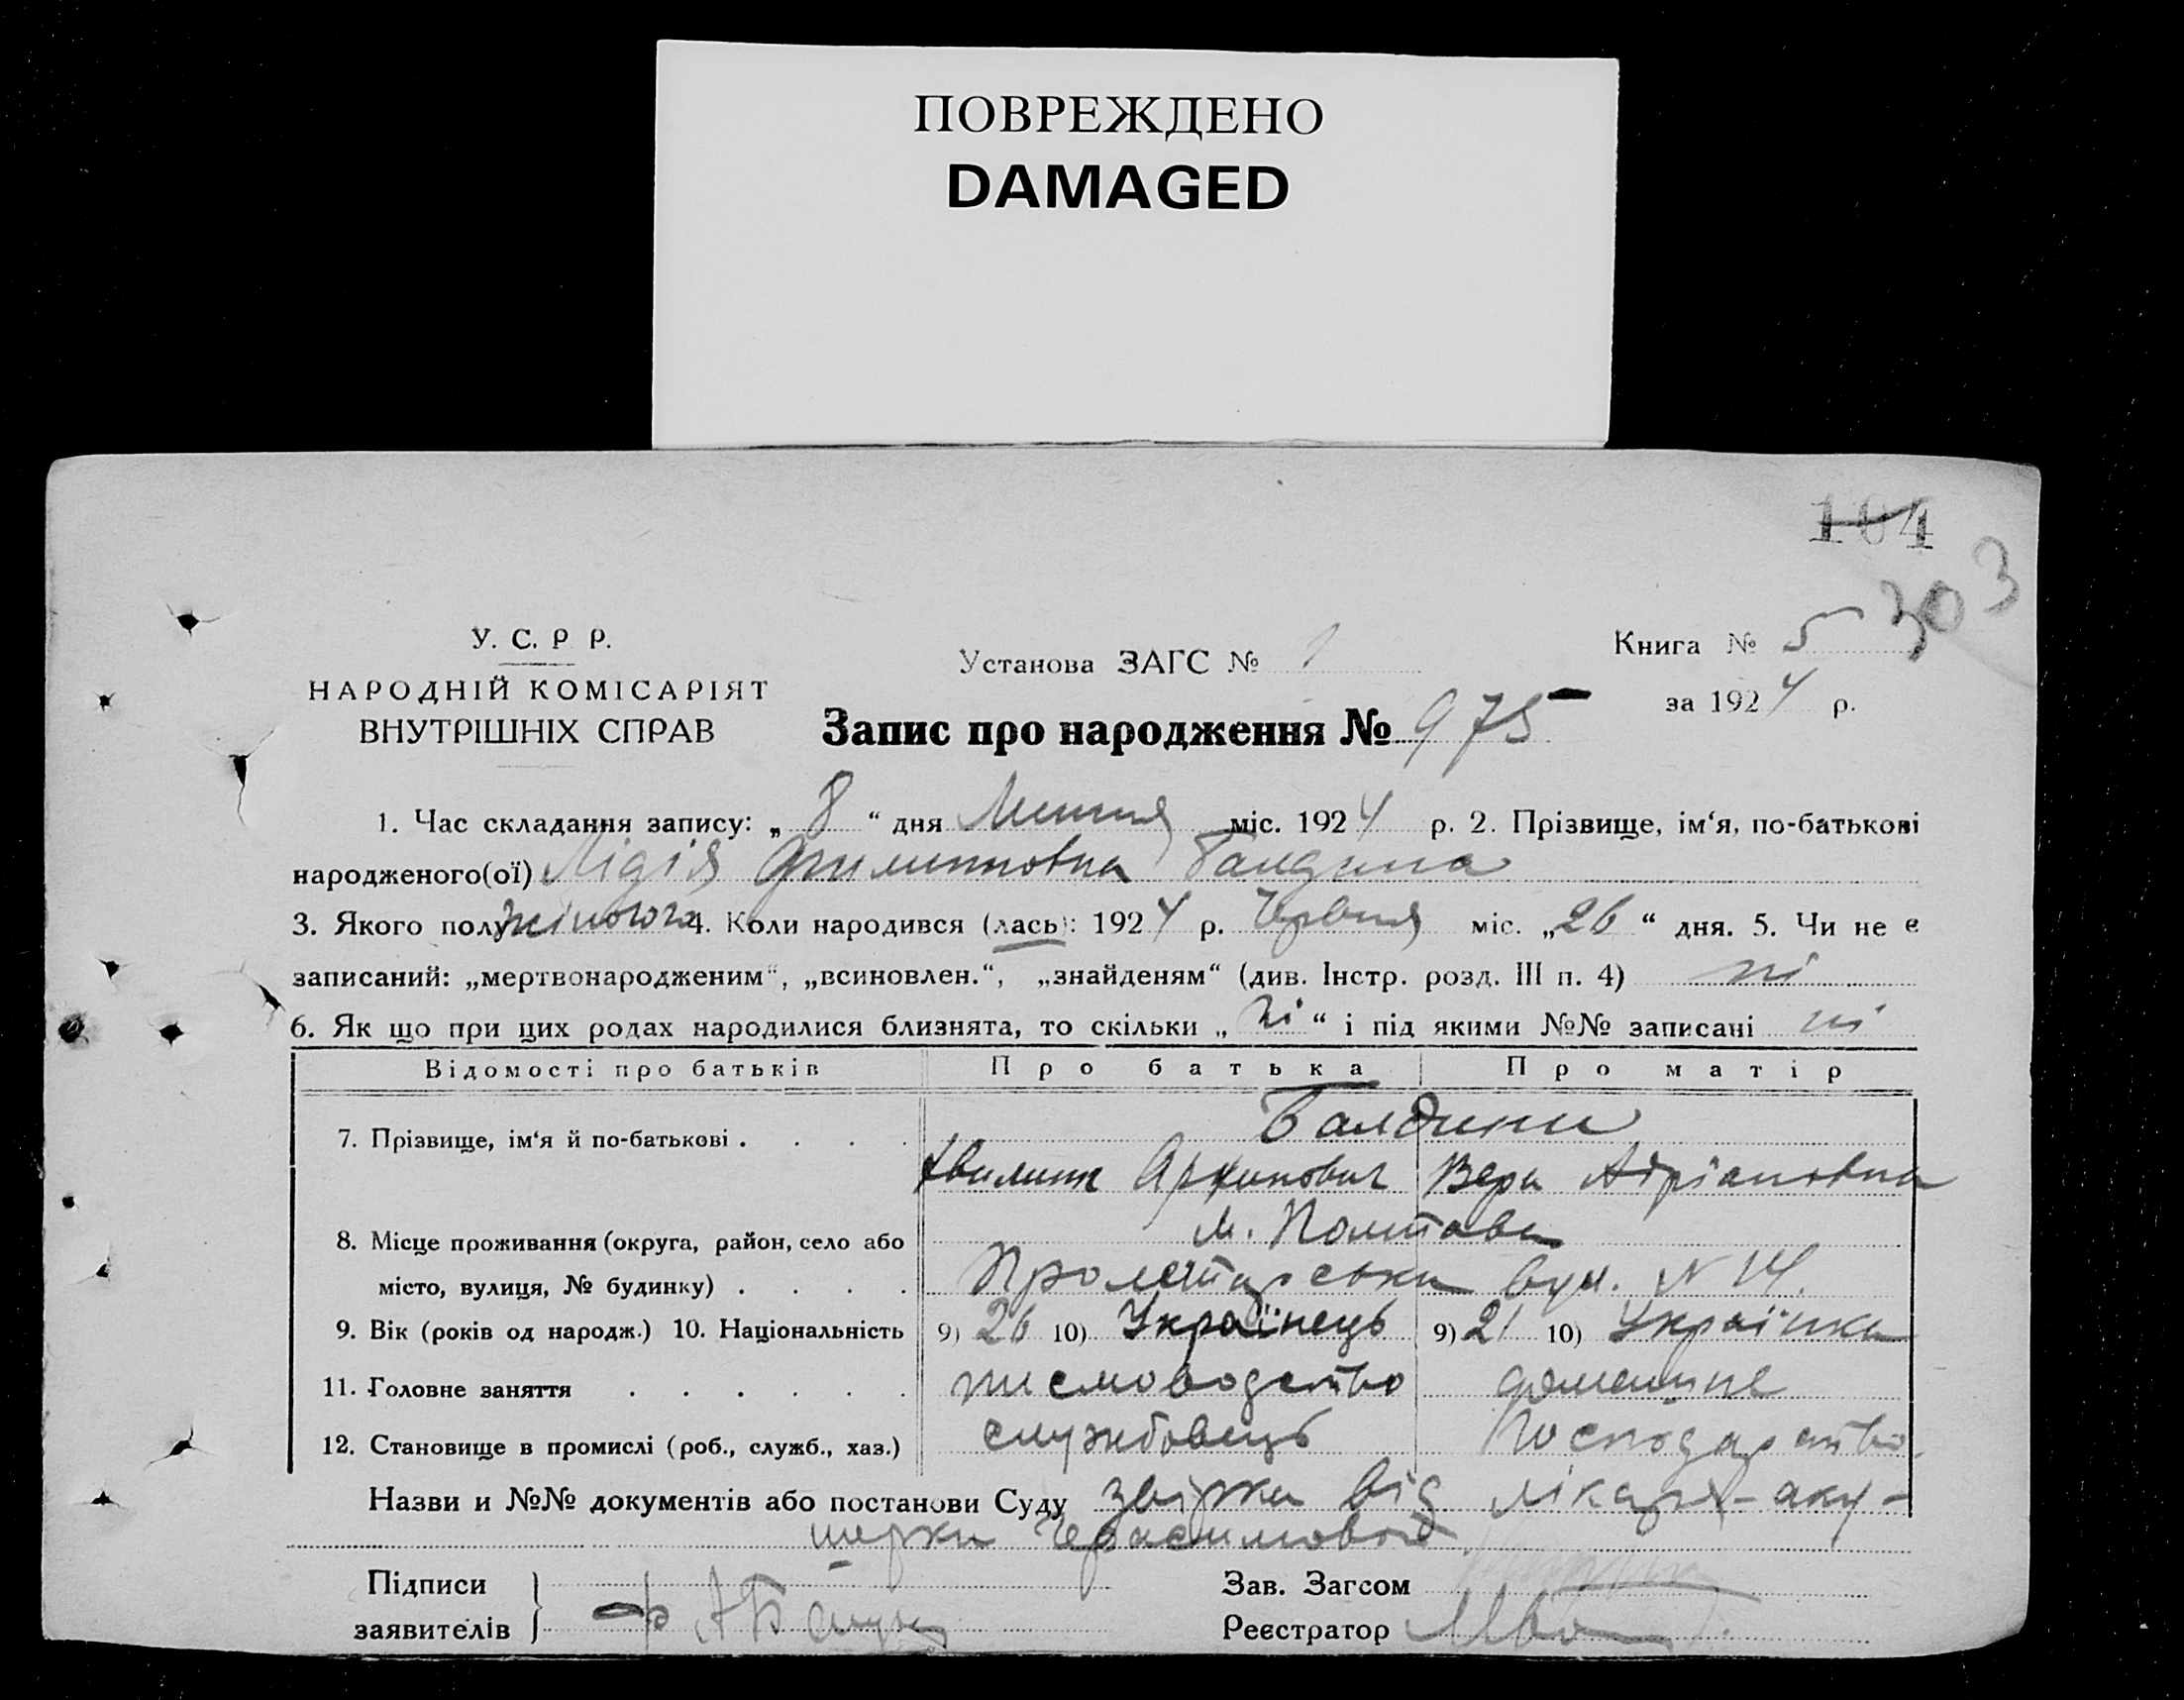 ПОВРЕЖДЕНО
DAMAGED
104
303
У. С. Р Р.
НАРОДНІЙ КОМІСАРІЯТ
ВНУТРІШНІХ СПРАВ
Установа ЗАГС № 1
Книга № 5
за 1924 р.
Запис про народження № 975
1. Час складання запису: „ 8 “ дня Липня міс. 1924 р. 2. Прізвище, ім‘я, по-батькові
народженого(ої) Лідія Филипповна
3. Якого полу жіночого 4. Коли народився (лась): 1924 р. Червня міс. „26“ дня. 5. Чи не є
записаний: „мертвонародженим“, „всиновлен.“, „знайденям“ (див. Інстр. розд. III п. 4) ні
6. Як що при цих родах народилися близнята, то скільки „ ні “ і під якими №№ записані ні
Відомості про батьків Про батька Про матір
7. Прізвище, ім‘я й по-батькові . . . . Балдини
Архипович Вера Адріановна
8. Місце проживання (округа, район, село або м. Полтава
місто, вулиця, № будинку) . . . . Пролетарська вул. N 14.
9. Вік (років од народж.) 10. Національність 9) 26 10) Українець 9) 21 10) Українка
11. Головне заняття . . . . . . писмоводство домашне
12. Становище в промислі (роб., служб., хаз.) службовець господарство.
Назви и №№ документів або постанови Суду від лікаря-аку-
шерки Герасимовой
Підписи
заявителів
Зав. Загсом
Реєстратор